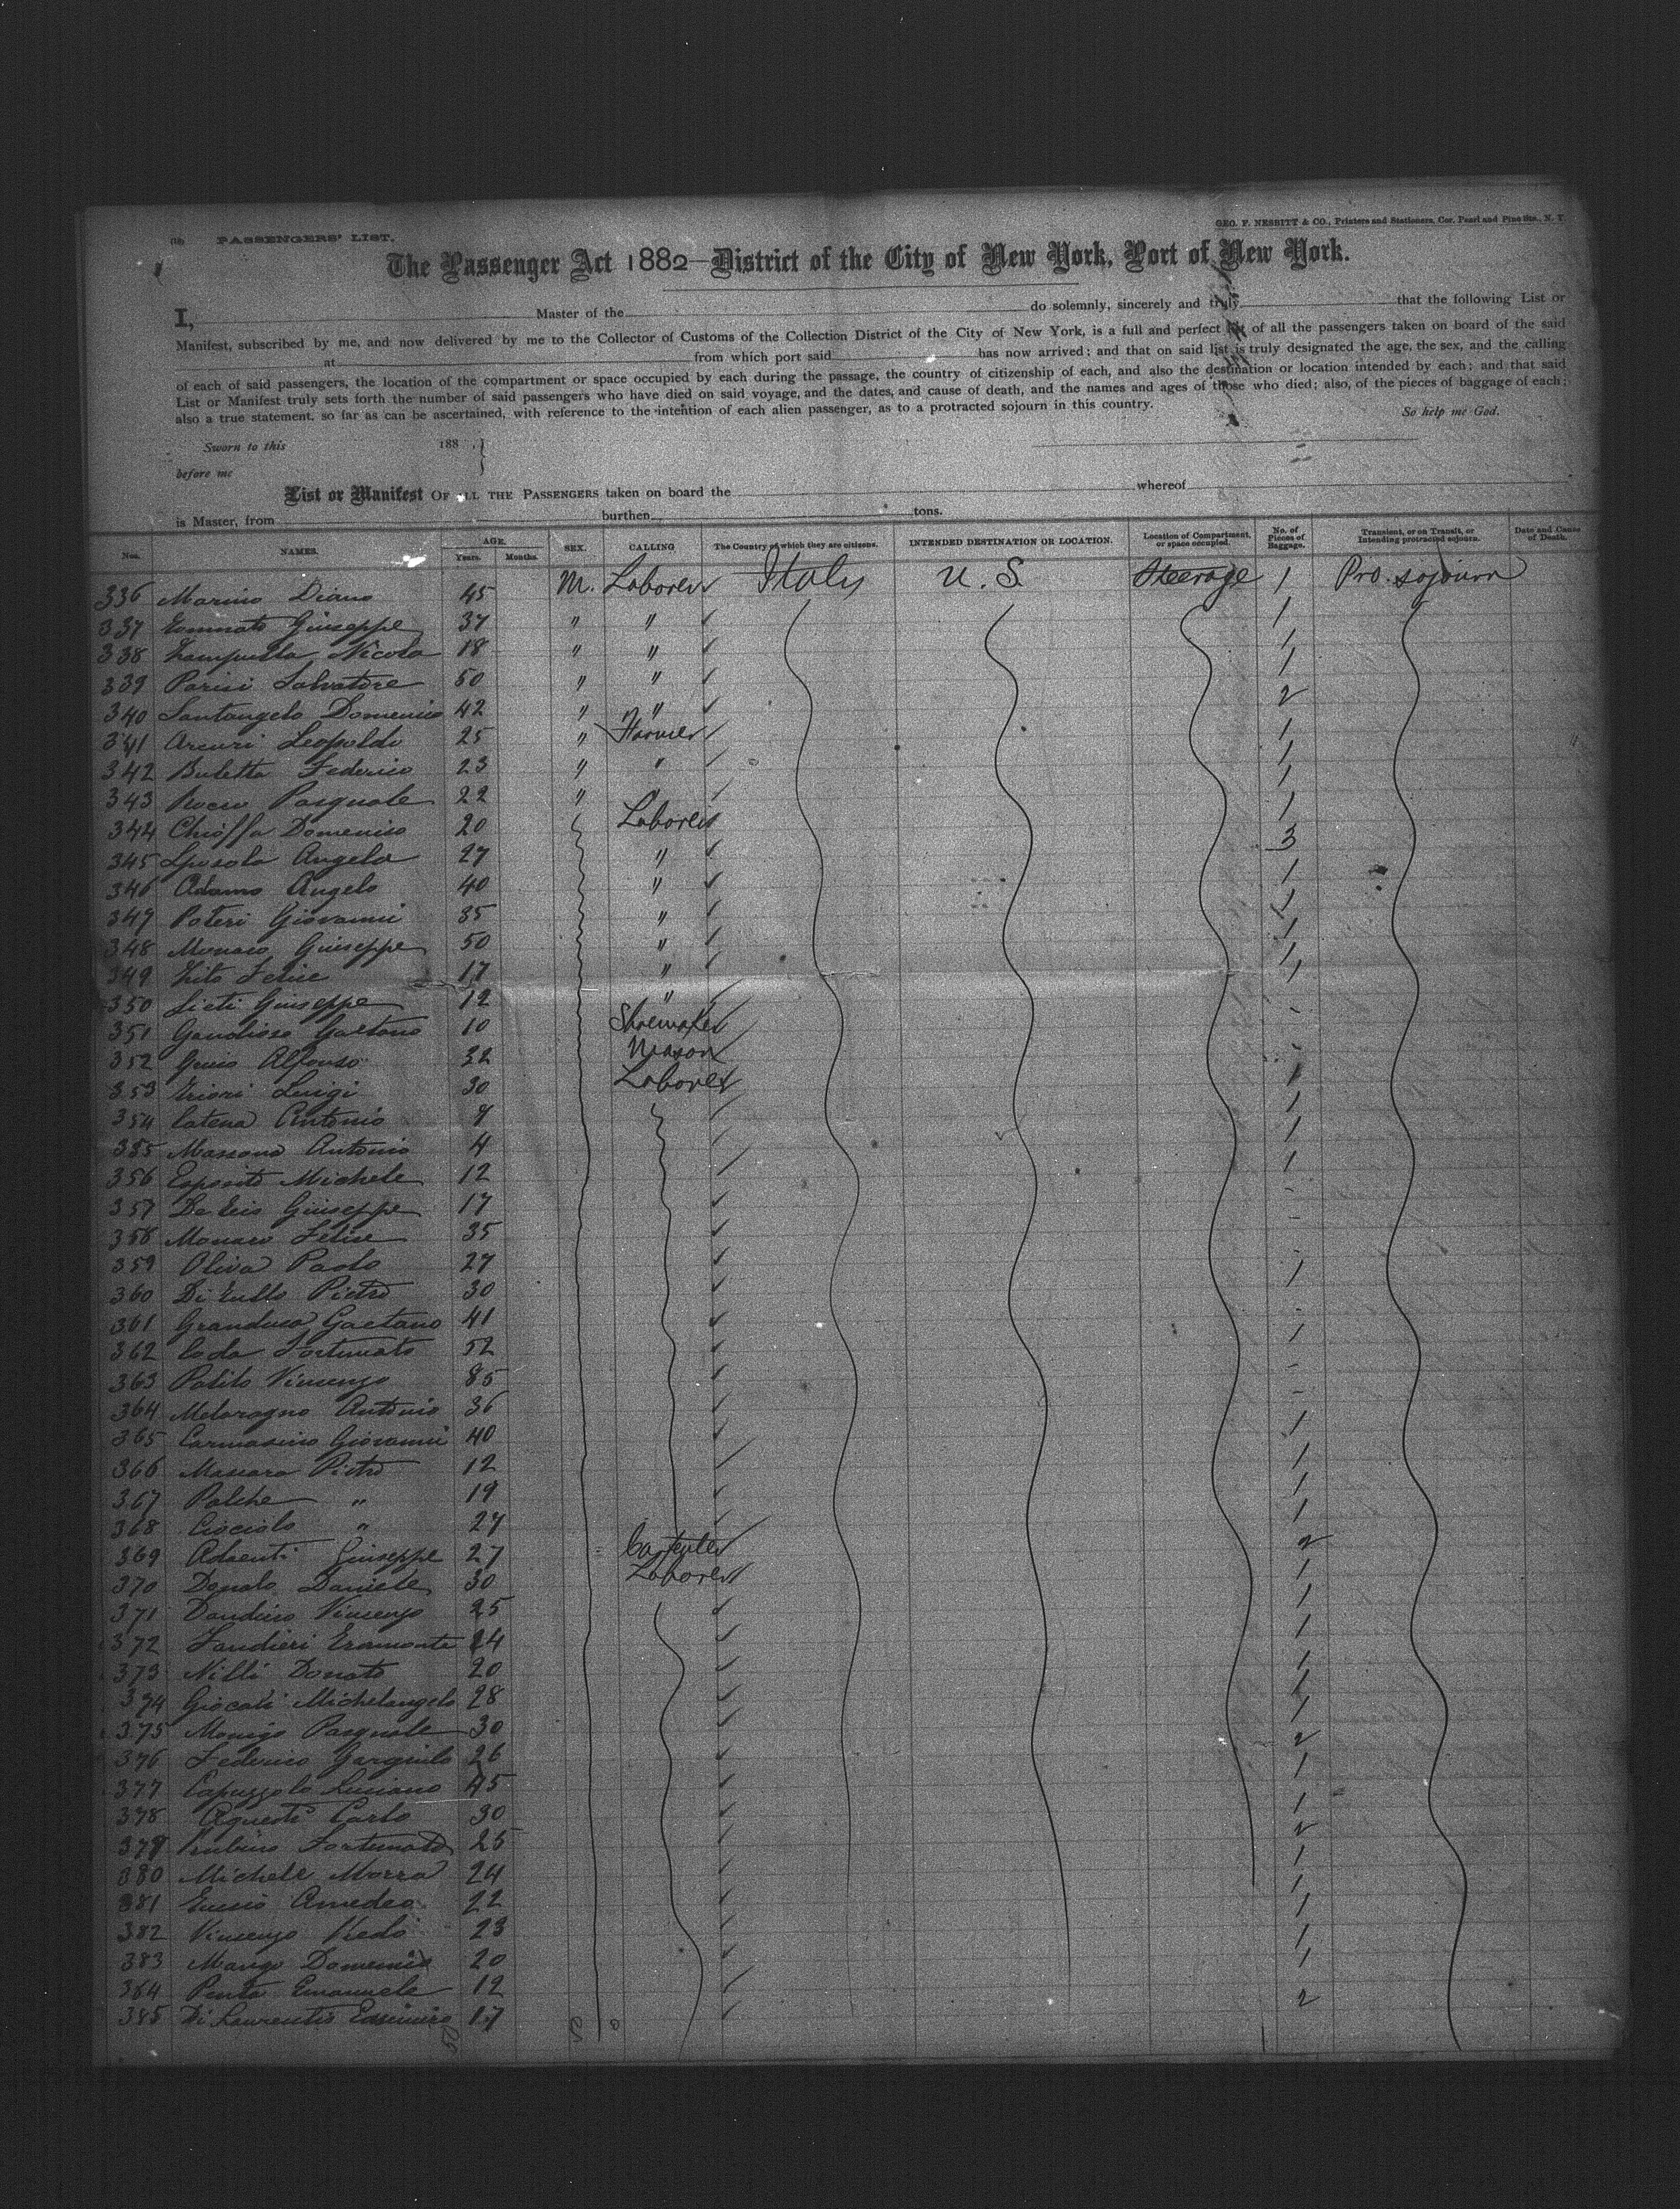 PASSENGERS' LIST.
GEO. F. NESBITT & CO., Printers and Stationers, Cor. Pearl and Pine Sts., N. Y.
The Passenger Act 1882—District of the City of New York, Port of New York.
I, Master of the do solemnly, sincerely and truly that the following List or
Manifest, subscribed by me, and now delivered by me to the Collector of Customs of the Collection District of the City of New York, is a full and perfect list of all the passengers taken on board of the said
at from which port said has now arrived; and that on said list is truly designated the age, the sex, and the calling
of each of said passengers, the location of the compartment or space occupied by each during the passage, the country of citizenship of each, and also the destination or location intended by each; and that said
List or Manifest truly sets forth the number of said passengers who have died on said voyage, and the dates, and cause of death, and the names and ages of those who died; also, of the pieces of baggage of each;
also a true statement, so far as can be ascertained, with reference to the intention of each alien passenger, as to a protracted sojourn in this country. So help me God.
Sworn to this 188 .
before me
List or Manifest OF ALL THE PASSENGERS taken on board the whereof
is Master, from burthen tons.
Nos. NAMES. AGE. Years. Months. SEX. CALLING The Country of which they are citizens. INTENDED DESTINATION OR LOCATION. Location of Compartment, or space occupied. No. of Pieces of Baggage. Transient, or on Transit, or Intending protracted sojourn. Date and Cause of Death.
336 Marino Diano 45 M. Laborer Italy U. S. Steerage 1 Pro. sojourn
337 Giuseppe 37 " " 1
338 Nicola 18 " " 1
339 Parisi Salvatore 50 " " 1
340 Santangelo Domenico 42 " " 2
341 Arcuri Leopoldo 25 " Farmer 1
342 Buletta Federico 23 " " 1
343 Rocco Pasquale 22 " " 1
344 Chioffa Domenico 20 Laborer 1
345 Sposola Angelo 27 " 3
346 Adamo Angelo 40 " 1
347 Poteri Giovanni 35 " 1
348 Monaco Giuseppe 50 " 1
349 Zito Felice 17 " 1
350 Lieti Giuseppe 12 " 1
351 Gaudioso Gaetano 10 Shoemaker -
352 Alfonso 32 Mason -
353 Luigi 30 Laborer 1
354 Catena Antonio 9 1
355 Massona Antonio 4 1
356 Esposito Michele 12 1
357 Giuseppe 17 -
358 Monaco Felice 35 -
359 Oliva Paolo 27 -
360 Di Tullo Pietro 30 1
361 Granduca Gaetano 41 -
362 Coda Fortunato 52 1
363 Polito Vincenzo 35 -
364 Melaragno Antonio 36 -
365 Carmasino Giovanni 40 1
366 Massara Pietro 12 1
367 Polche " 19 1
368 Ciociolo " 27 1
369 Adventi Giuseppe 27 Carpenter 2
370 Donato Daniele 30 Laborer 1
371 Dandino Vincenzo 25 1
372 Landieri 24 1
373 Nilli Donato 20 1
374 Giocati Michelangelo 28 1
375 Monigo Pasquale 30 1
376 Federico Gargiulo 26 2
377 Capuzzolo Luciano 45 1
378 Carlo 30 1
379 Rubino Fortunato 25 2
380 Michele Morra 24 1
381 Amedeo 22 1
382 Vincenzo 23 1
383 Mango Domenico 20 1
384 Penta Emanuele 12 1
385 Di Laurentis 17 2